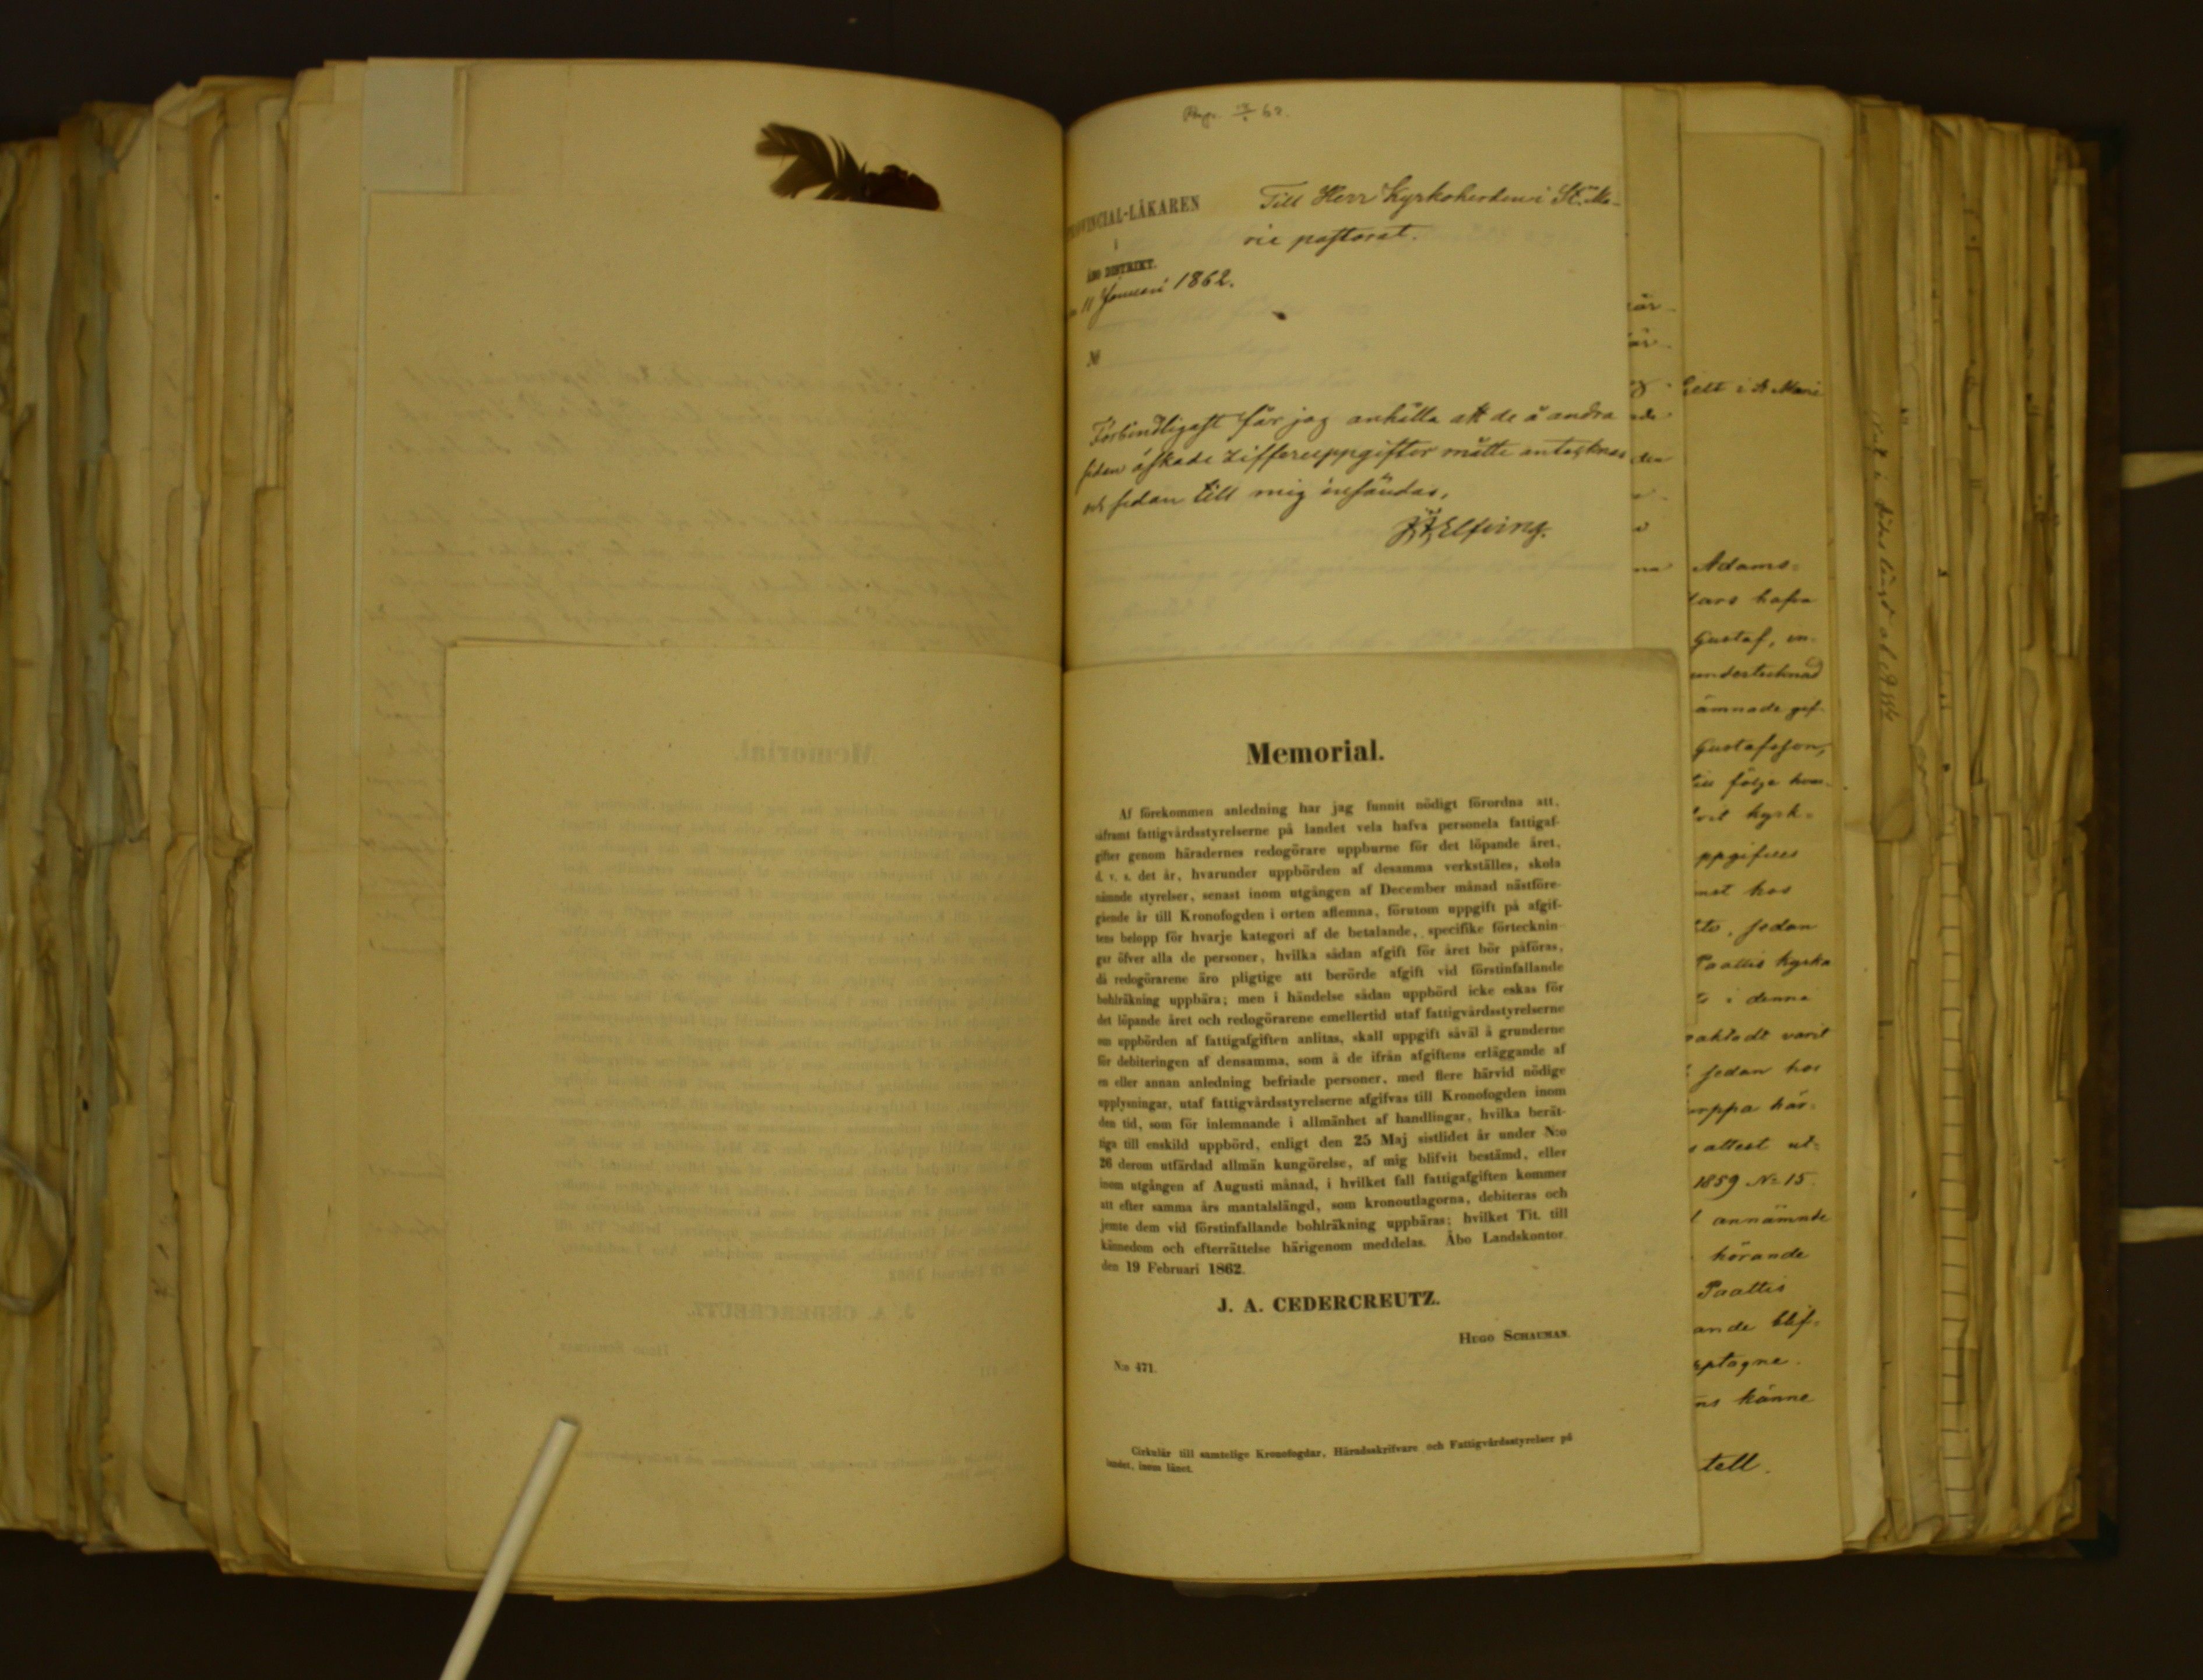 62.
PROVINCIAL-LÄKAREN
i
ÅBO DISTRIKT.
11 Januari 1862.
№
Till Herr Kyrkoherden i St. Ma-
rie pastorat.
Förbindligast får jag anhålla att de å andra
sidan äskade zifferuppgifter måtte antecknas
och sedan till mig insändas.
Elfving.
Memorial.
Af förekommen anledning har jag funnit nödigt förordna att,
såframt fattigvårdsstyrelserne på landet vela hafva personela fattigaf-
gifter genom häradernes redogörare uppburne för det löpande året,
d. v. s. det år, hvarunder uppbörden af desamma verkställes, skola
nämnde styrelser, senast inom utgången af December månad nästföre-
gående år till Kronofogden i orten aflemna, förutom uppgift på afgif-
tens belopp för hvarje kategori af de betalande, specifike förtecknin-
gar öfver alla de personer, hvilka sådan afgift för året bör påföras,
då redogörarene äro pligtige att berörde afgift vid förstinfallande
bohlräkning uppbära; men i händelse sådan uppbörd icke eskas för
det löpande året och redogörarene emellertid utaf fattigvårdsstyrelserne
om uppbörden af fattigafgiften anlitas, skall uppgift såväl å grunderne
för debiteringen af densamma, som å de ifrån afgiftens erläggande af
en eller annan anledning befriade personer, med flere härvid nödige
upplysningar, utaf fattigvårdsstyrelserne afgifvas till Kronofogden inom
den tid, som för inlemnande i allmänhet af handlingar, hvilka berät-
tiga till enskild uppbörd, enligt den 25 Maj sistlidet år under N:o
26 derom utfärdad allmän kungörelse, af mig blifvit bestämd, eller
inom utgången af Augusti månad, i hvilket fall fattigafgiften kommer
att efter samma års mantalslängd, som kronoutlagorna, debiteras och
jemte dem vid förstinfallande bohlräkning uppbäras; hvilket Tit. till
kännedom och efterrättelse härigenom meddelas. Åbo Landskontor
den 19 Februari 1862.
J. A. CEDERCREUTZ.
HUGO SCHAUMAN.
N:o 471.
Cirkulär till samtelige Kronofogdar, Häradsskrifvare och Fattigvårdsstyrelser på
landet, inom länet.
i St Marie
Adams-
lars hafva
Gustaf, en
undertecknad
ämnade gif-
Gustafsson,
till följe hvar-
kyrk-
ppgifves
hos
sedan
Paattis kyrka
i denna
aktadt varit
sedan hos
här-
attest ut-
1859 No 15.
annämnde
hörande
Paattis
ande blif-
ptagne.
ns känne
tell.